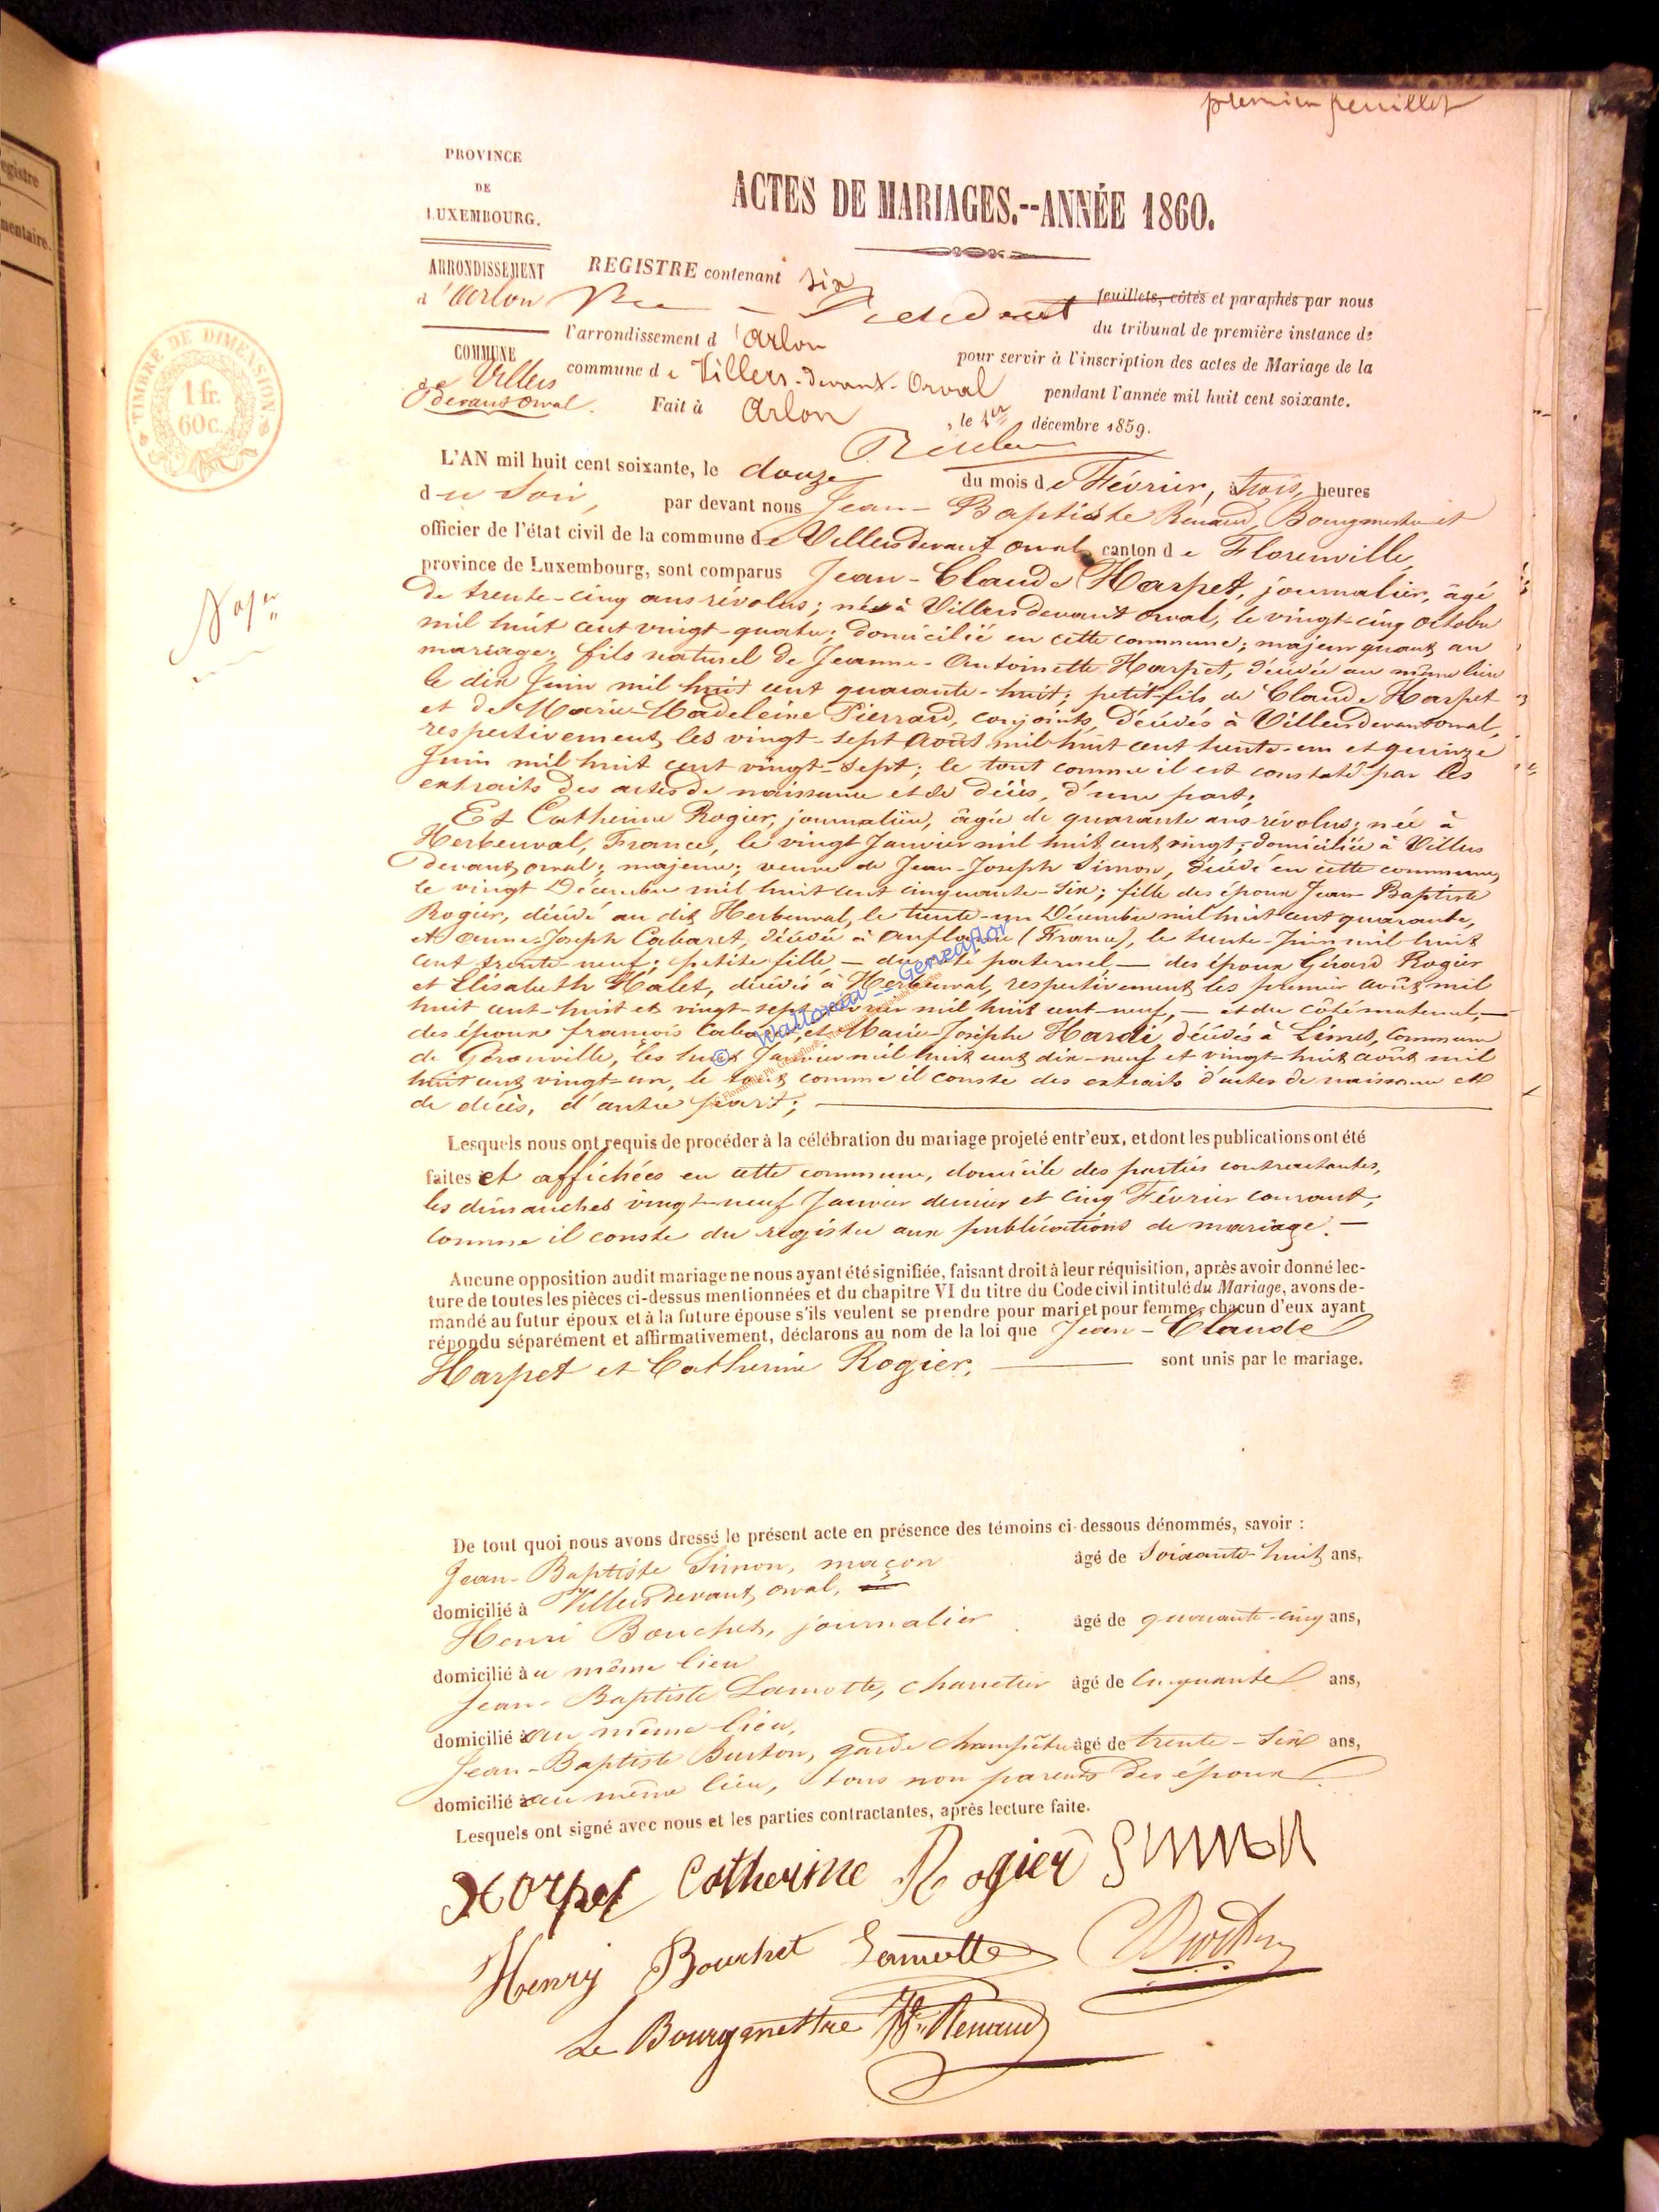 premier feuillet
PROVINCE
DE
LUXEMBOURG.
ACTES DE MARIAGES.--ANNÉE 1860.
ARRONDISSEMENT
d'Arlon
REGISTRE contenant six
feuillets, côtés et paraphés par nous
Vice - Président
du tribunal de première instance de
l'arrondissement d'Arlon
pour servir à l'inscription des actes de Mariage de la
COMMUNE
de Villers
devant Orval.
commune de Villers-devant-Orval
pendant l'année mil huit cent soixante.
Fait à Arlon, le 1er décembre 1859.
TIMBRE DE DIMENSION
1 fr.
60 c.
L'AN mil huit cent soixante, le douze du mois de Février, à trois heures
du soir, par devant nous Jean-Baptiste Renaud, Bourgmestre et
officier de l'état civil de la commune de Villers devant orval, canton de Florenville,
province de Luxembourg, sont comparus Jean-Claude Harpet, journalier, âgé
de trente-cinq ans révolus; né à Villers devant orval, le vingt-cinq octobre
mil huit cent vingt-quatre; domicilié en cette commune; majeur quant au
mariage; fils naturel de Jeanne-Antoinette Harpet, décédée au même lieu
le dix Juin mil huit cent quarante-huit; petit-fils de Claude Harpet
et de Marie-Madeleine Pierrard, conjoints, décédés à Villers devant orval,
respectivement les vingt-sept Août mil huit cent trente-un et quinze
Juin mil huit cent vingt-sept; le tout comme il est constaté par les
extraits des actes de naissance et de décès, d'une part;
Et Catherine Rogier, journalière, âgée de quarante ans révolus; née à
Herbeuval, France, le vingt Janvier mil huit cent vingt; domiciliée à Villers
devant orval; majeure; veuve de Jean-Joseph Simon, décédé en cette commune,
le vingt Décembre mil huit cent cinquante-six; fille des époux Jean-Baptiste
Rogier, décédé au dit Herbeuval, le trente-un Décembre mil huit cent quarante,
et Anne-Joseph Cabaret, décédée à (France), le trente Juin mil huit
cent trente-neuf; petite fille - du côté paternel - des époux Gérard Rogier
et Elisabeth Halet, décédés à Herbeuval, respectivement les premier août mil
huit cent-huit et vingt-sept mil huit cent-neuf, - et du côté maternel, -
des époux françois Cabaret, et Marie-Josèphe Hardi, décédés à Limes, commune
de Gérouville, les Janvier mil huit cent dix-neuf et vingt-huit août mil
huit cent vingt-un, le tout comme il conste des extraits d'actes de naissance et
de décès, d'autre part;
© Wallonia -- Geneaflor
Lesquels nous ont requis de procéder à la célébration du mariage projeté entr'eux, et dont les publications ont été
faites et affichées en cette commune, domicile des parties contractantes,
les dimanches vingt-neuf Janvier dernier et cinq Février courant,
comme il conste du registre aux publications de mariage. -
Aucune opposition audit mariage ne nous ayant été signifiée, faisant droit à leur réquisition, après avoir donné lec-
ture de toutes les pièces ci-dessus mentionnées et du chapitre VI du titre du Code civil intitulé du Mariage, avons de-
mandé au futur époux et à la future épouse s'ils veulent se prendre pour mari et pour femme, chacun d'eux ayant
répondu séparément et affirmativement, déclarons au nom de la loi que Jean-Claude
Harpet et Catherine Rogier, sont unis par le mariage.
De tout quoi nous avons dressé le présent acte en présence des témoins ci-dessous dénommés, savoir :
Jean-Baptiste Simon, maçon âgé de soixante-huit ans,
domicilié à Villers devant orval,
Henri Bouchet, journalier âgé de quarante-cinq ans,
domicilié au même lieu
Jean-Baptiste Lamotte, charretier âgé de cinquante ans,
domicilié au même lieu,
Jean-Baptiste Burton, garde champêtre âgé de trente-six ans,
domicilié au même lieu, tous non parents des époux.
Lesquels ont signé avec nous et les parties contractantes, après lecture faite.
Harpet Catherine Rogier Simon
Henry Bouchet Lamotte Burton
Le Bourgmestre Renaud